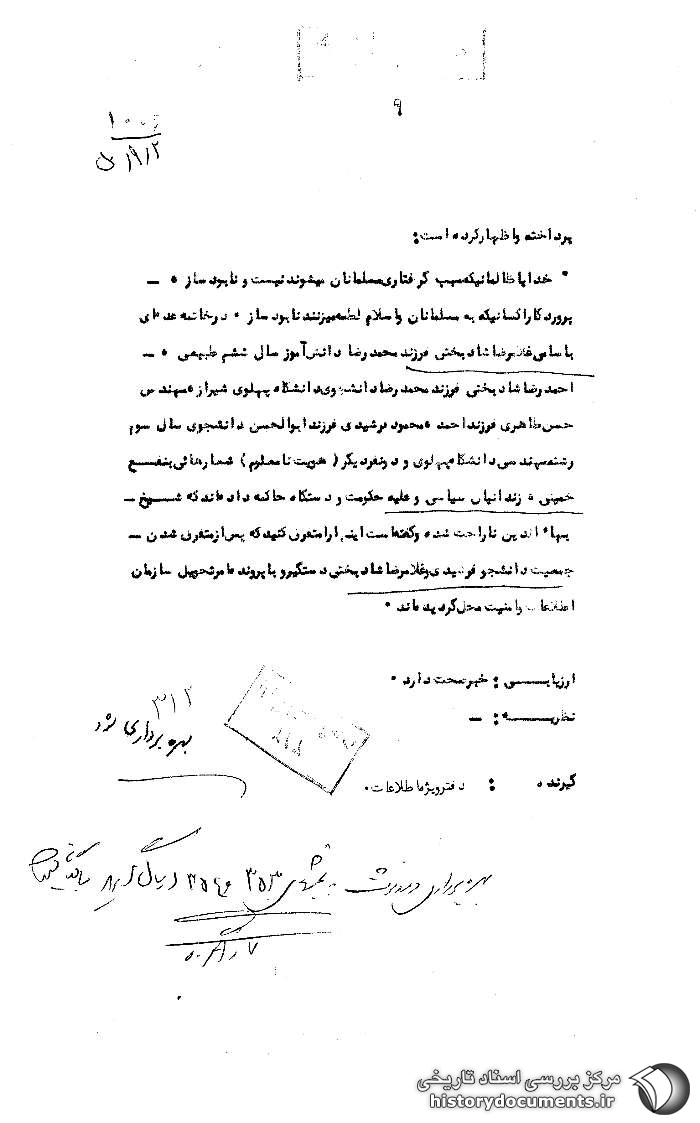 ۹
۱۰۰۶
۵/۹/۲
پرداخته و اظهار کرده است:
" خدایا ظالمانیکه سبب گرفتاری مسلمانان میشوند نیست و نابود ساز ۰ ـ
پروردگارا کسانیکه به مسلمانان و اسلام لطمه میزنند نابود ساز ۰ در خاتمه عده ای
باسامی غلامرضا شادبختی فرزند محمدرضا دانش آموز سال ششم طبیعی ۰ ـ
احمدرضا شادبختی فرزند محمدرضا دانشجوی دانشگاه پهلوی شیراز ۰ مهندس
حسن طاهری فرزند احمد ۰ محمود فرشیدی فرزند ابوالحسن دانشجوی سال سوم
رشته مهندسی دانشگاه پهلوی و دو نفر دیگر ( هویت نامعلوم ) شعارهائی بنفع
خمینی ۰ زندانیان سیاسی و علیه حکومت و دستگاه حاکمه داده اند که شیخ ـ
بهاء الدین ناراحت شده و گفته است اینها را متفرق کنید که پس از متفرق شدن ـ
جمعیت دانشجو فرشیدی و غلامرضا شادبختی دستگیر و با پرونده امر تحویل سازمان
اطلاعات و امنیت محل گردیده اند ۰
ارزیابی : خبر صحت دارد ۰
نظریه : ـ
۳۱۲
بهره برداری شود
گیرنده : دفتر ویژه اطلاعات ۰
بهره برداری در بخشهای ۳۵۳ و ۳۵۴
مرکز بررسی اسناد تاریخی
historydocuments.ir